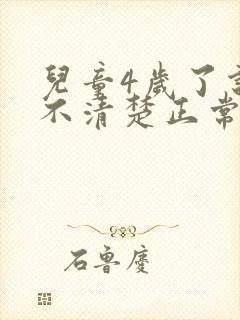 兒童4歲了言
不清楚正常
石魯慶